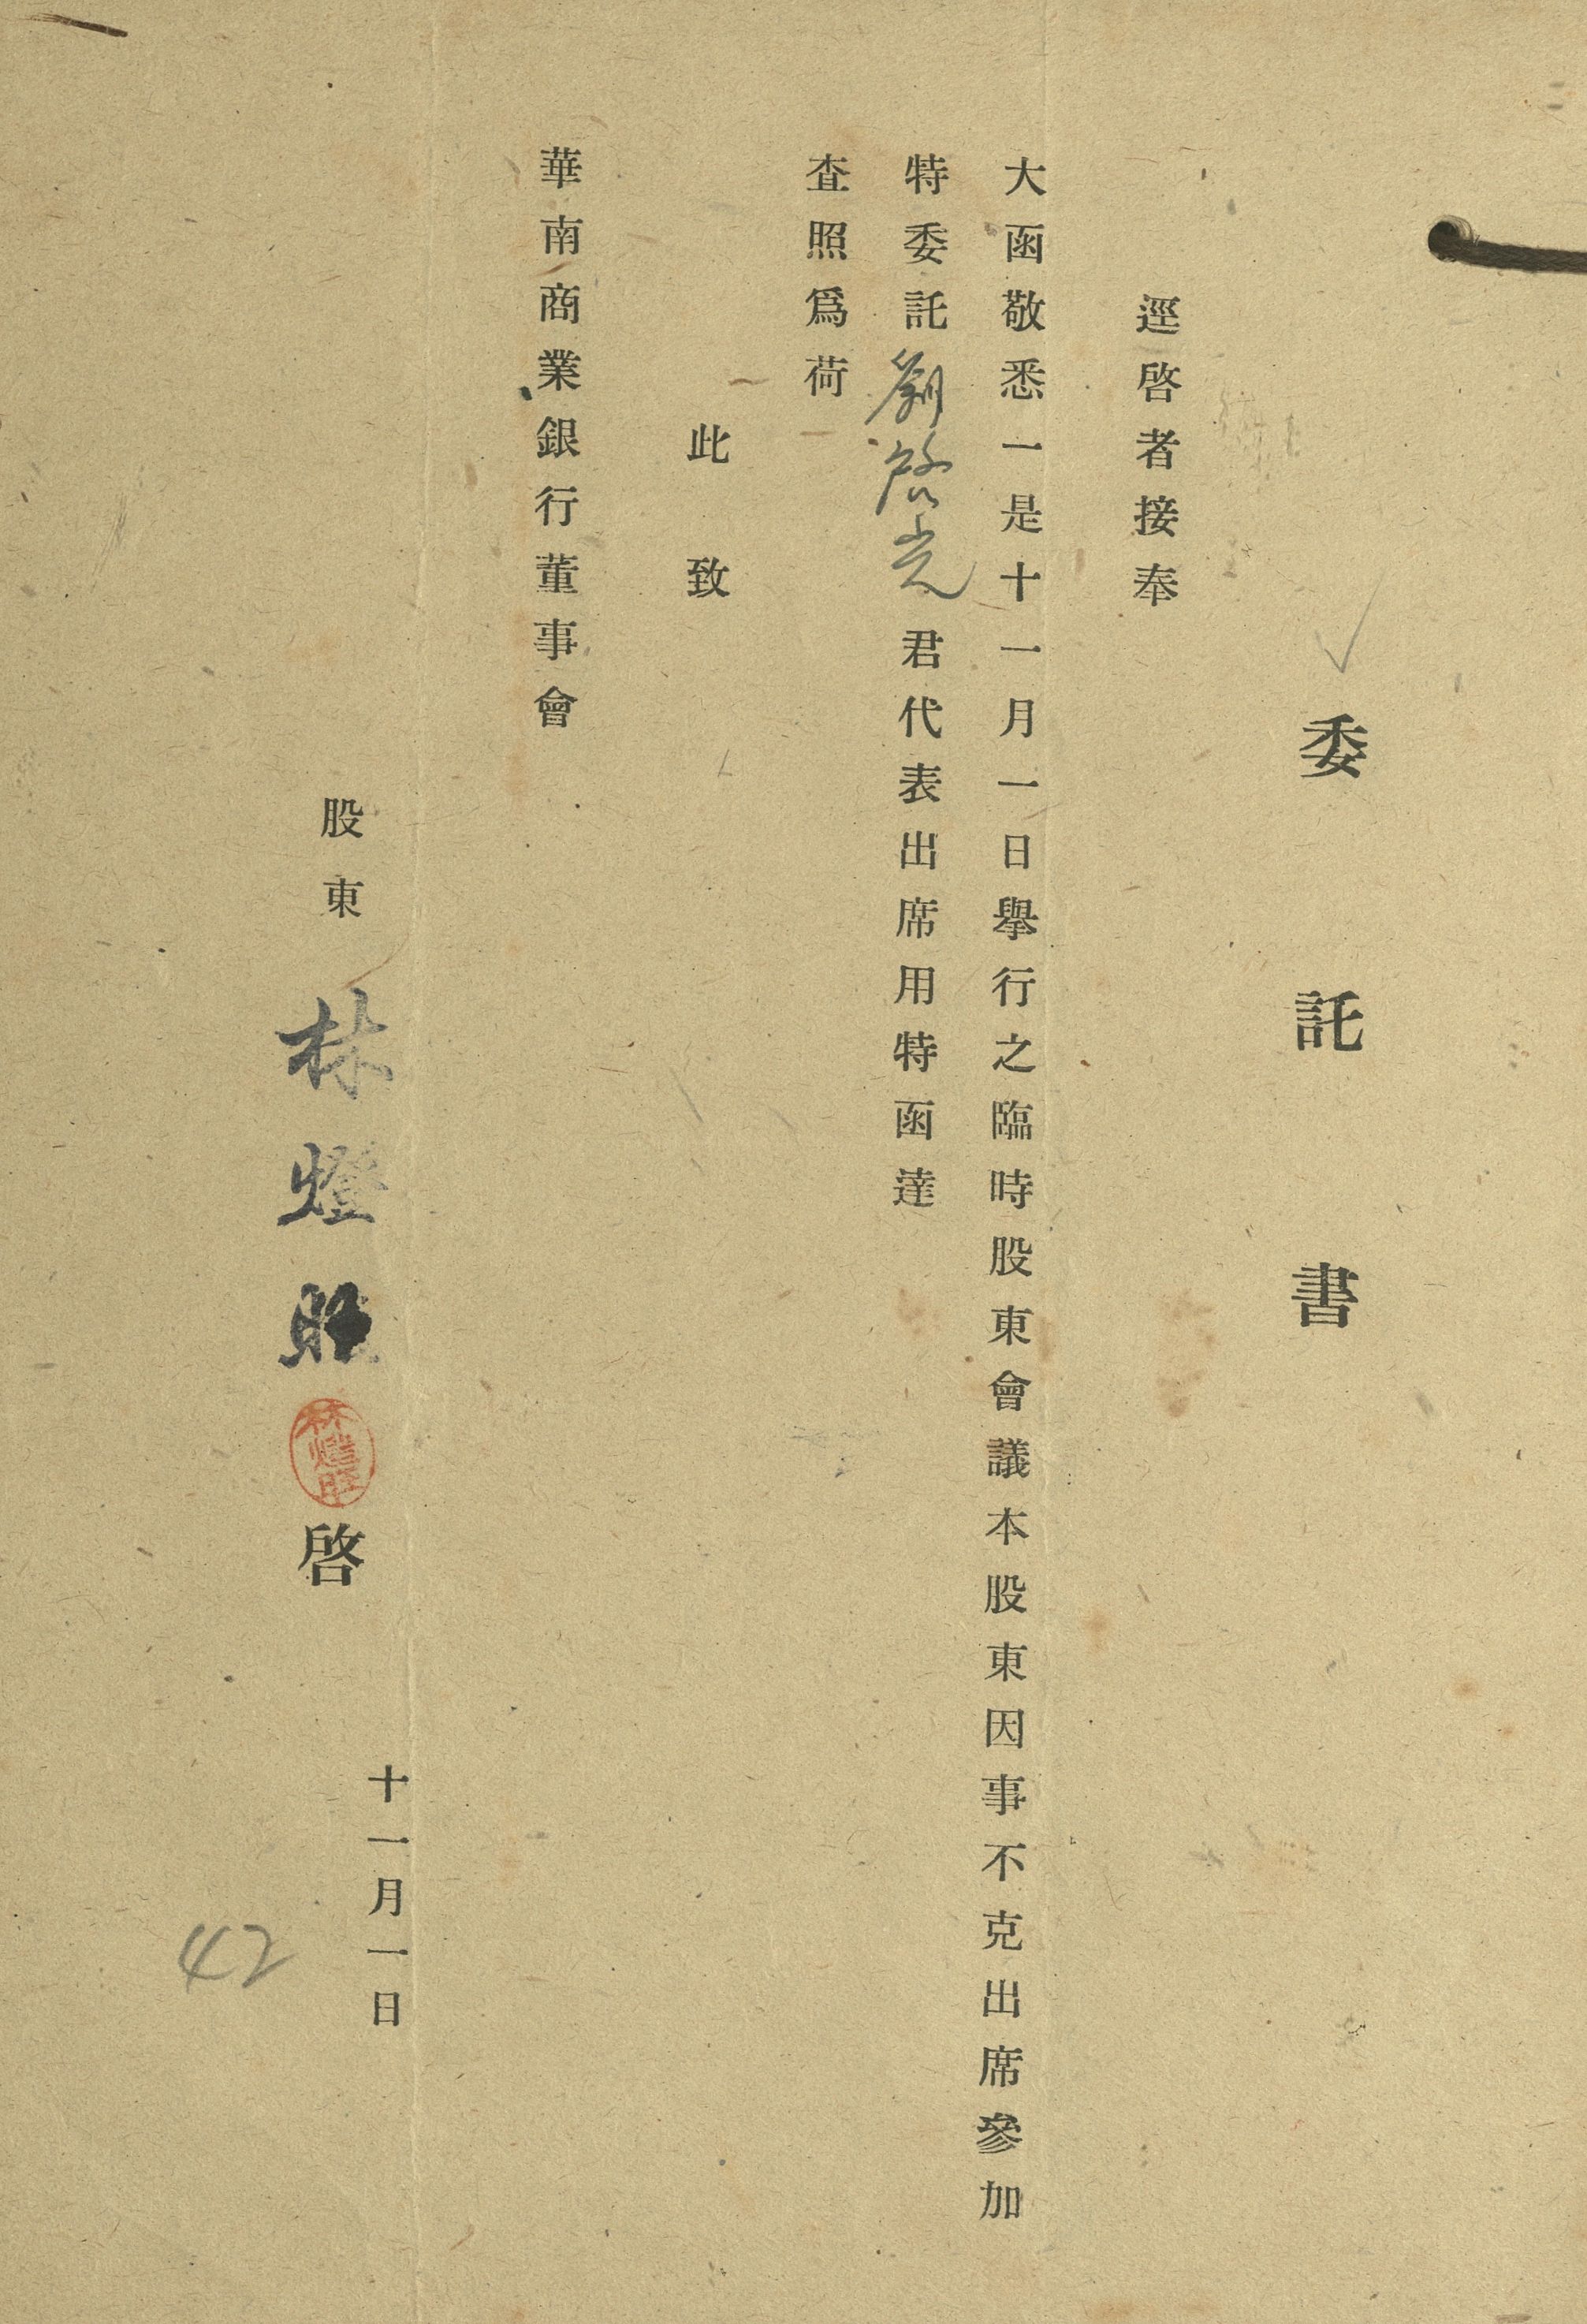 委託書
逕啓者接奉
大函敬悉一是十一月一日舉行之臨時股東會議本股東因事不克出席參加
特委託劉啓光君代表出席用特函達
查照爲荷
此致
華南商業銀行董事會
股東 林燈 啓
林燈
十一月一日
42